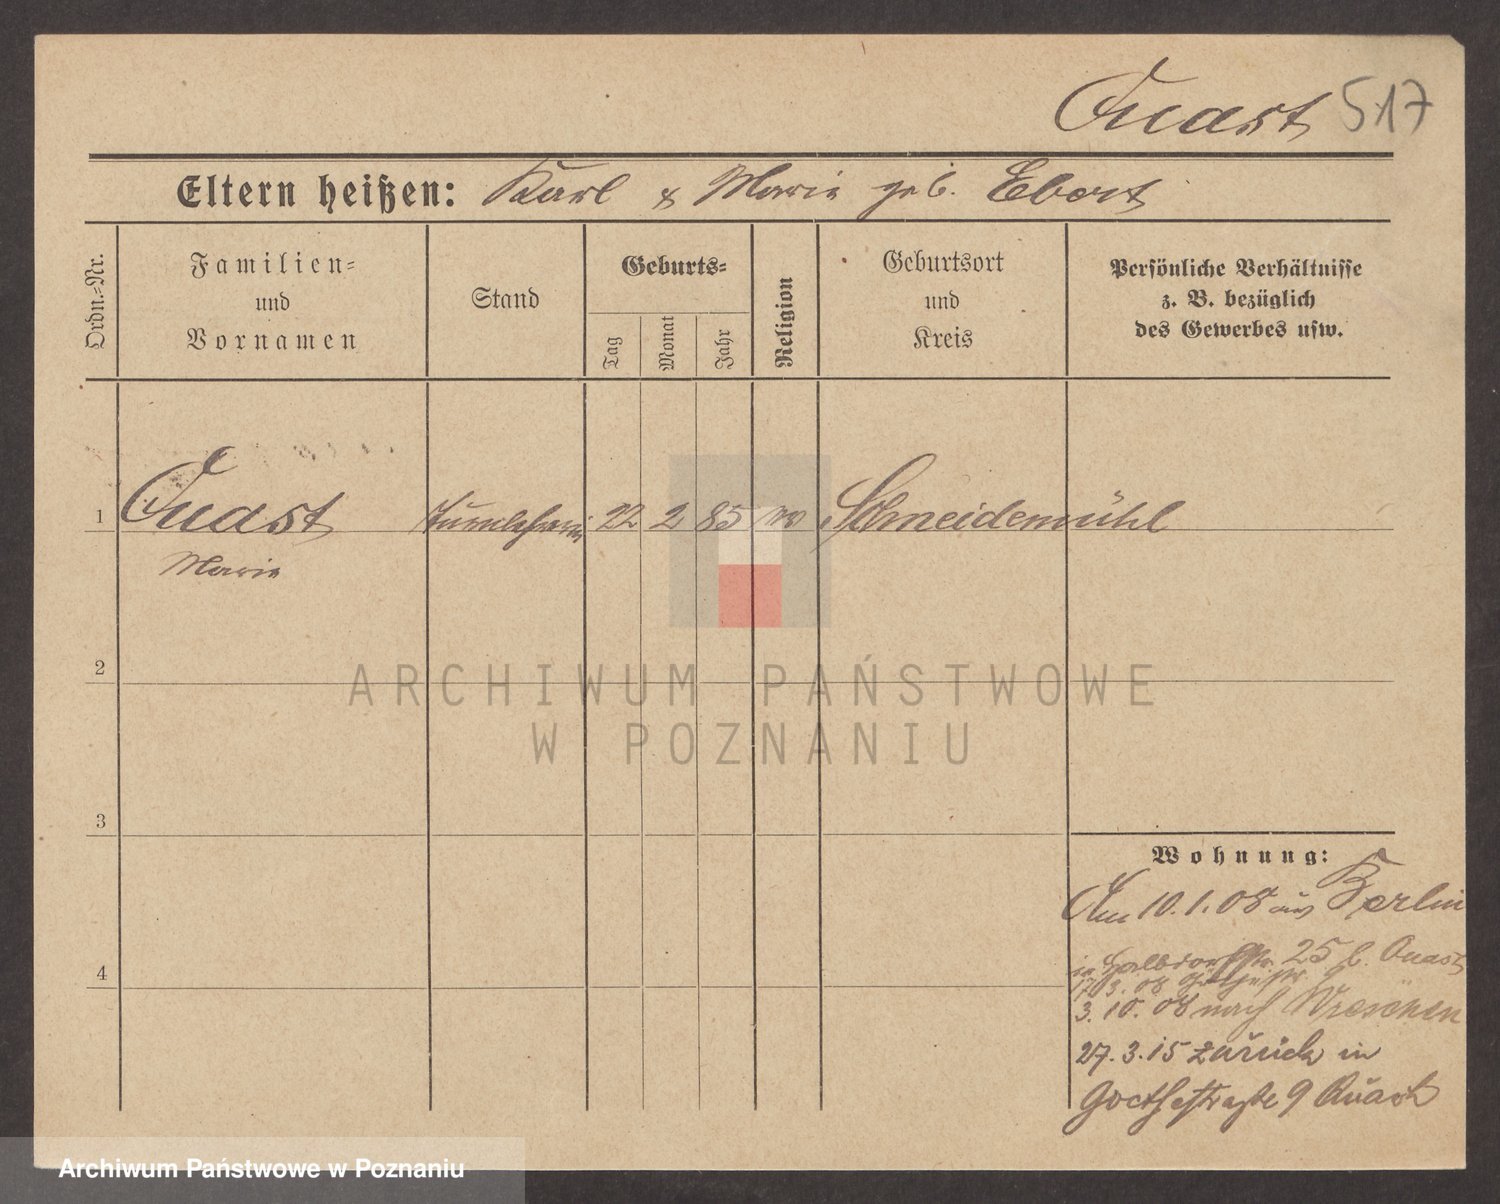 Quast 517
Eltern heißen: Karl & Marie geb. Ebert
Ordn.=Nr.
Familien=
und
Vornamen
Stand
Geburts=
Tag
Monat
Jahr
Religion
Geburtsort
und
Kreis
Persönliche Verhältnisse
z. B. bezüglich
des Gewerbes usw.
1 Quast Turnlehrerin 22 2 85 Schneidemühl
Marie
2
3
4
Wohnung:
Am 10.1.08 aus Berlin
in Halbdorfstr. 25 b. Quast
17.3.08 Goethestr. 9
3.10.08 nach Wreschen
27.3.15 zurück in
Goethestraße 9 Quast
ARCHIWUM PAŃSTWOWE
W POZNANIU
Archiwum Państwowe w Poznaniu